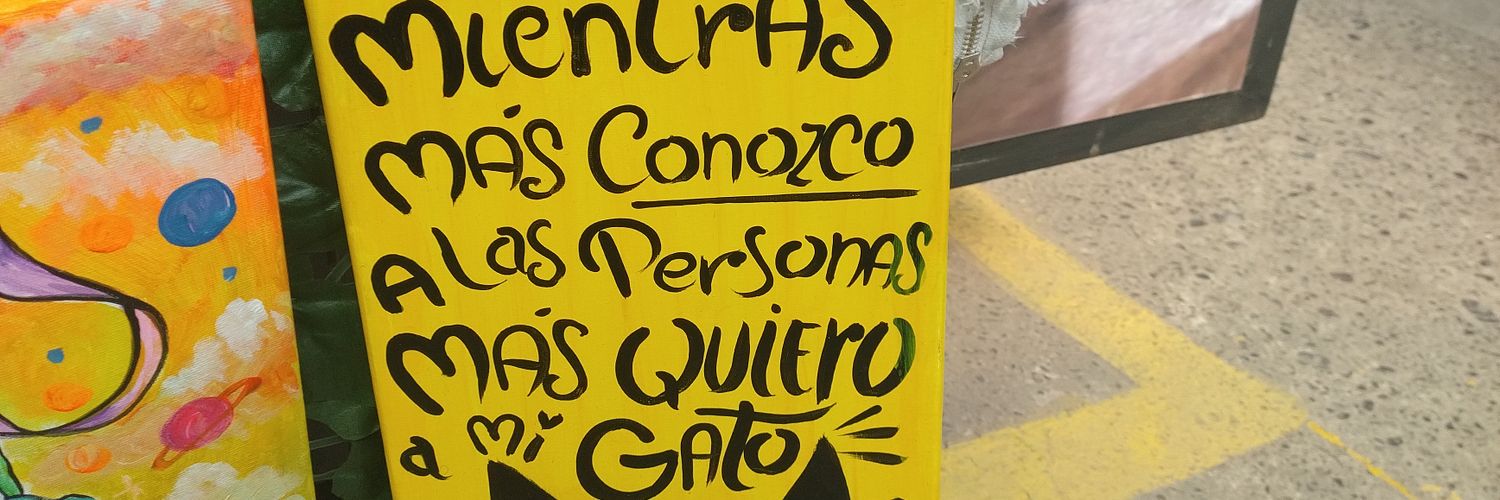 MIENTRAS
MÁS CONOZCO
A LAS PERSONAS
MÁS QUIERO
a mi GATO